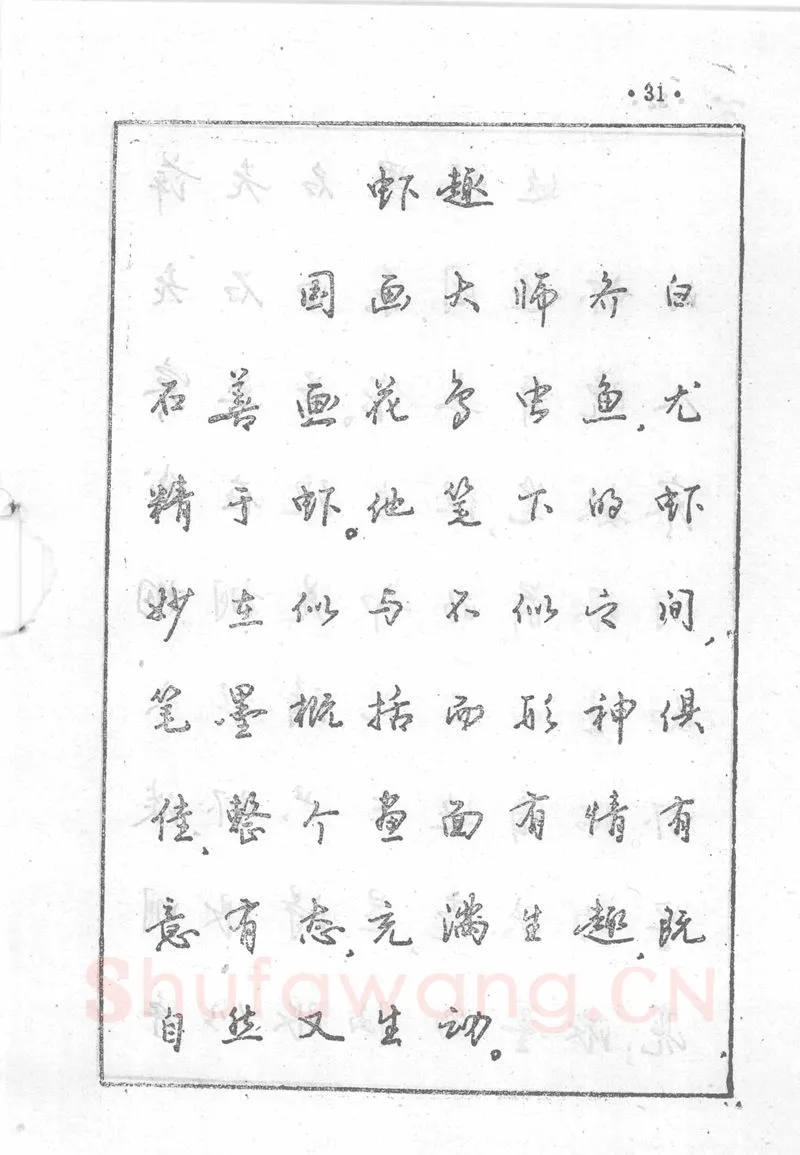 ·31·
虾趣
国画大师齐白
石善画花鸟虫鱼,尤
精于虾。他笔下的虾
妙在似与不似之间,
笔墨概括而形神俱
佳、整个画面有情有
意有态,充满生趣,既
自然又生动。
Shufawang.CN